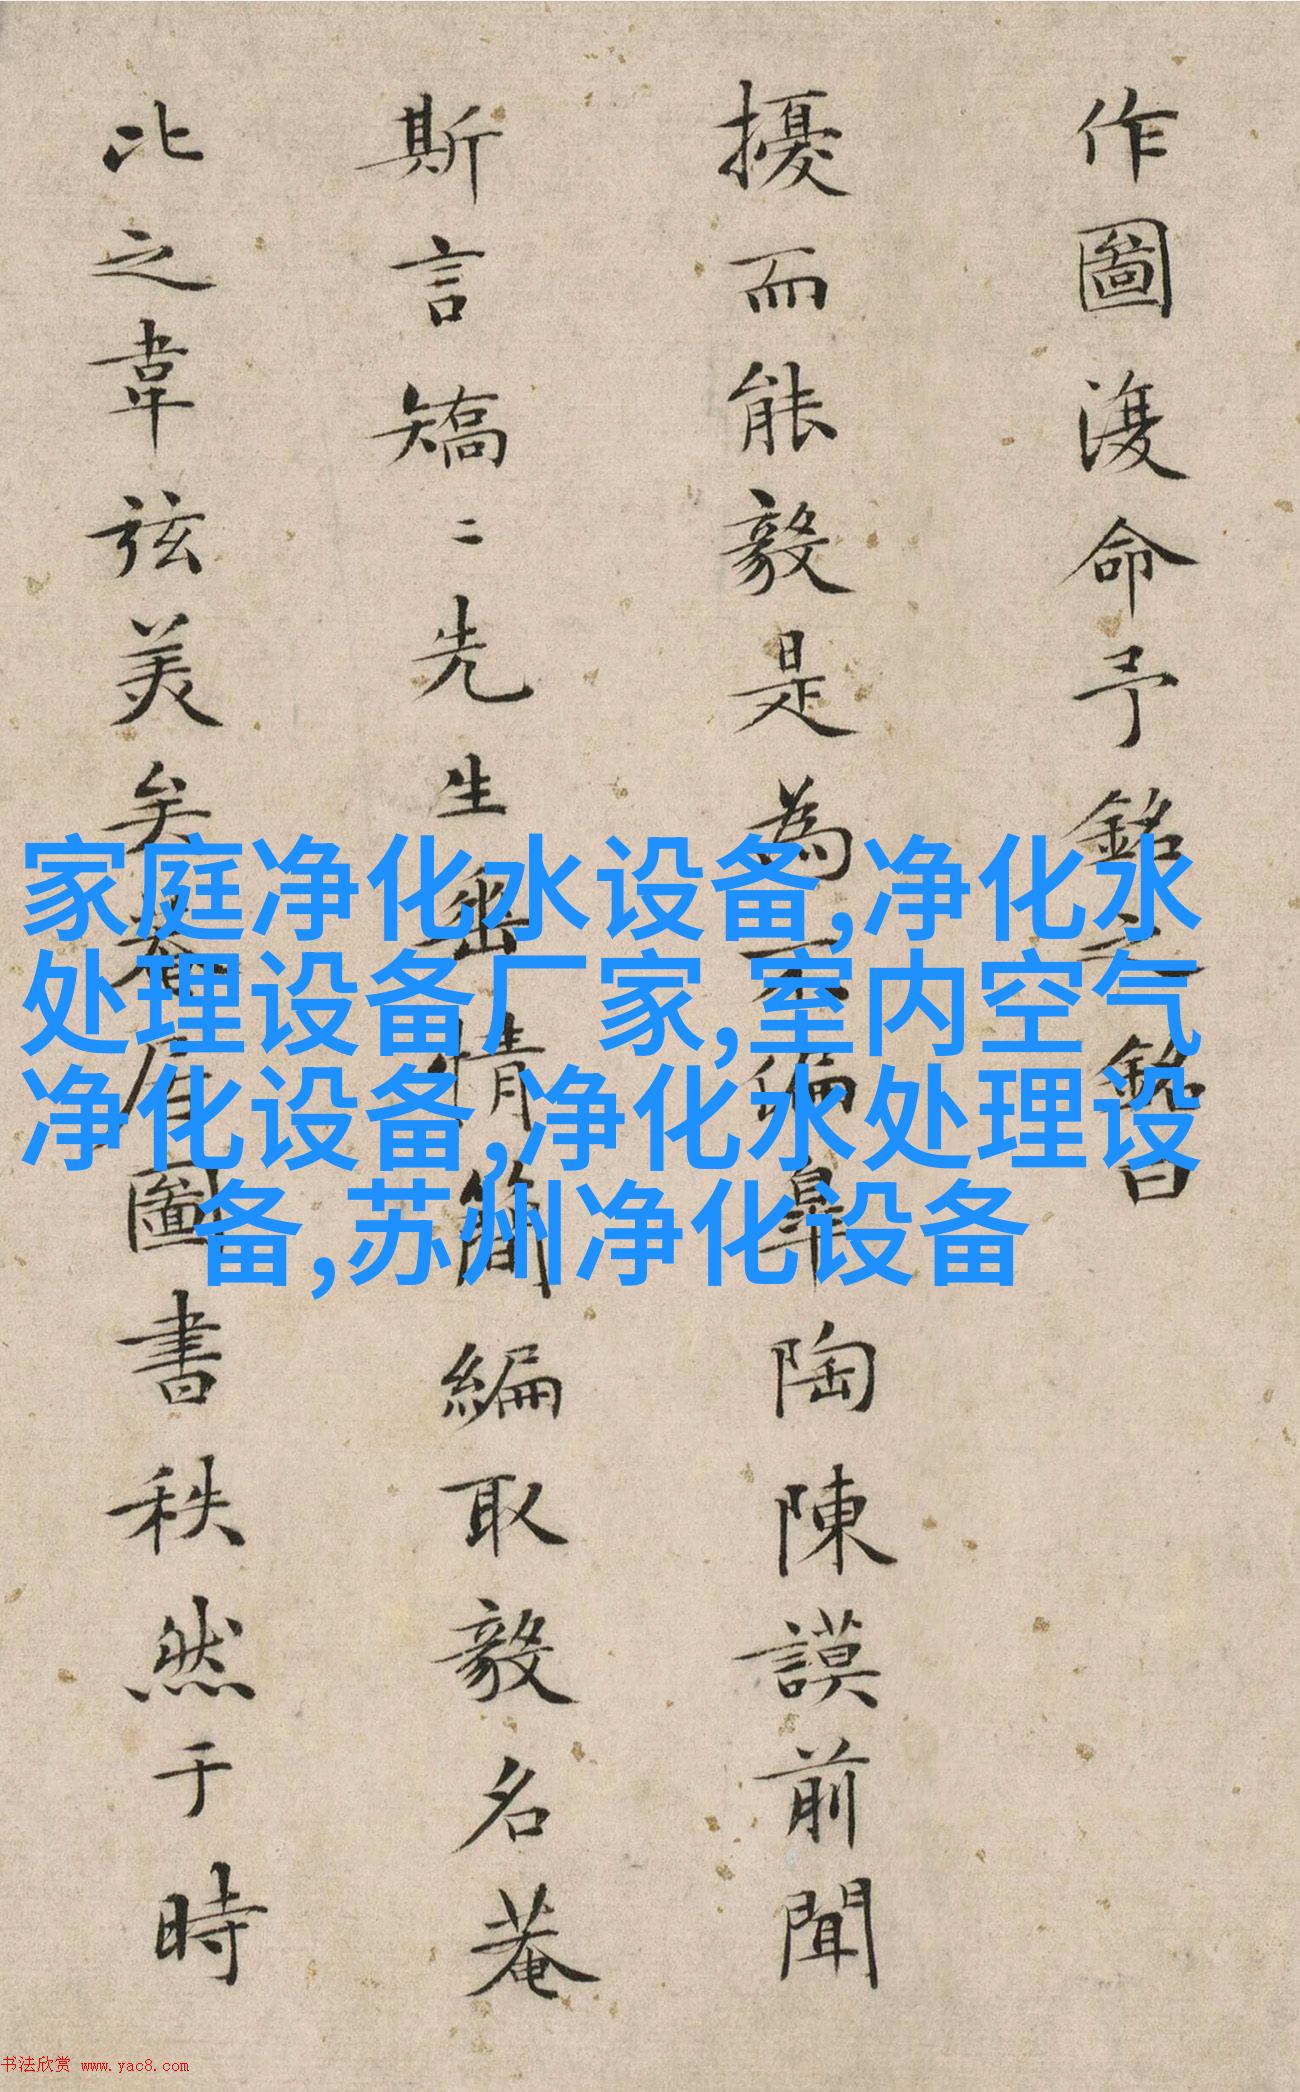 作圖復命予銘之銘曰
擾而能毅是為不偏皐陶陳謨前聞
斯言矯二先生幽情簡編取毅名菴
比之韋弦美矣菴居圖書秩然于時
家庭净化水设备,净化水
处理设备厂家,室内空气
净化设备,净化水处理设
备,苏州净化设备
书法欣赏 www.yac8.com